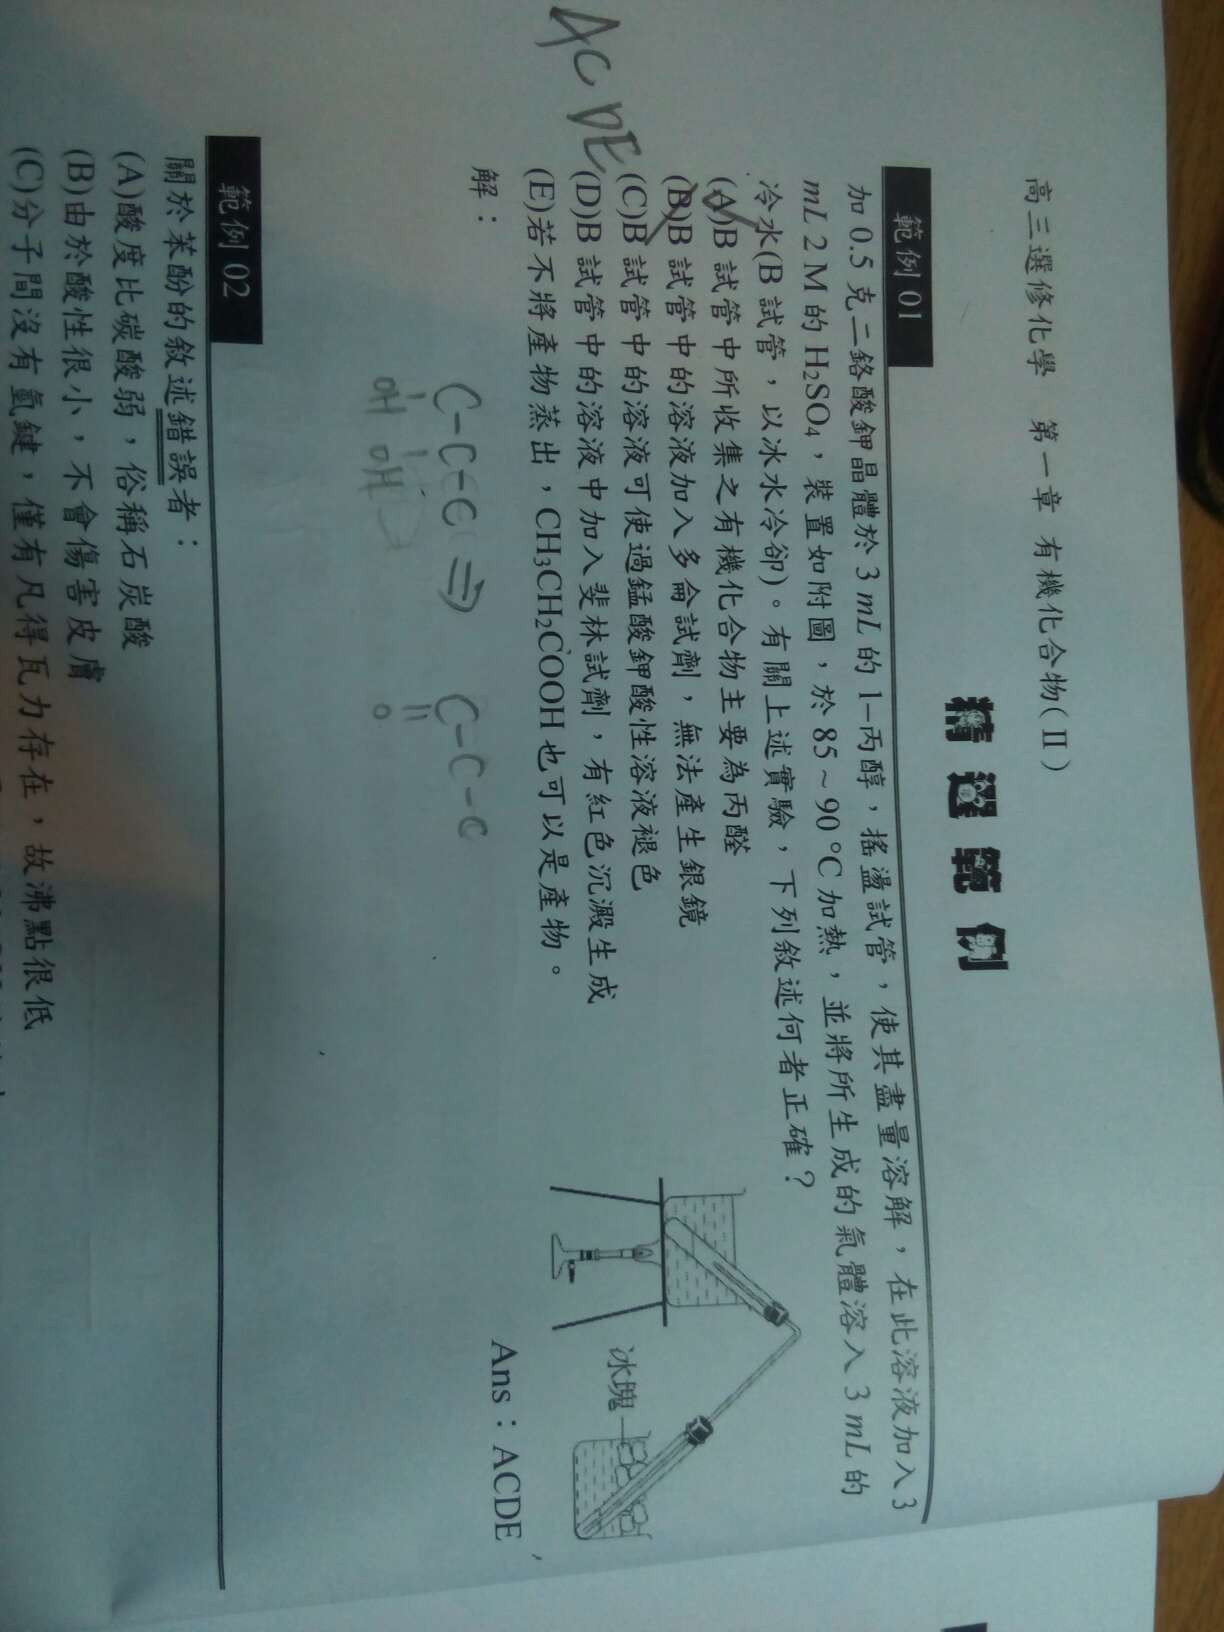 高三選修化學 第一章 有機化合物(Ⅱ)
精選範例
範例 01
加 0.5 克二鉻酸鉀晶體於 3 mL 的 1–丙醇，搖盪試管，使其盡量溶解，在此溶液加入 3
mL 2 M 的 H₂SO₄，裝置如附圖，於 85～90 °C 加熱，並將所生成的氣體溶入 3 mL 的
冷水(B 試管，以冰水冷卻)。有關上述實驗，下列敘述何者正確？
(A)B 試管中所收集之有機化合物主要為丙醛
(B)B 試管中的溶液加入多侖試劑，無法產生銀鏡
(C)B 試管中的溶液可使過錳酸鉀酸性溶液褪色
(D)B 試管中的溶液中加入斐林試劑，有紅色沉澱生成
(E)若不將產物蒸出，CH₃CH₂COOH 也可以是產物。
冰塊
ACDE
解：
Ans：ACDE
C-C-C ⇒ C-C-C
OH OH O
範例 02
關於苯酚的敘述錯誤者：
(A)酸度比碳酸弱，俗稱石炭酸
(B)由於酸性很小，不會傷害皮膚
(C)分子間沒有氫鍵，僅有凡得瓦力存在，故沸點很低